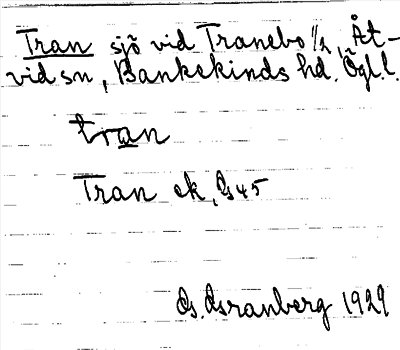 Tran sjö vid Tranebo 1/2, Åt-
vid sn, Bankekinds hd. Ögl.l.
tran
Tran ek, G 45
G. Granberg 1929